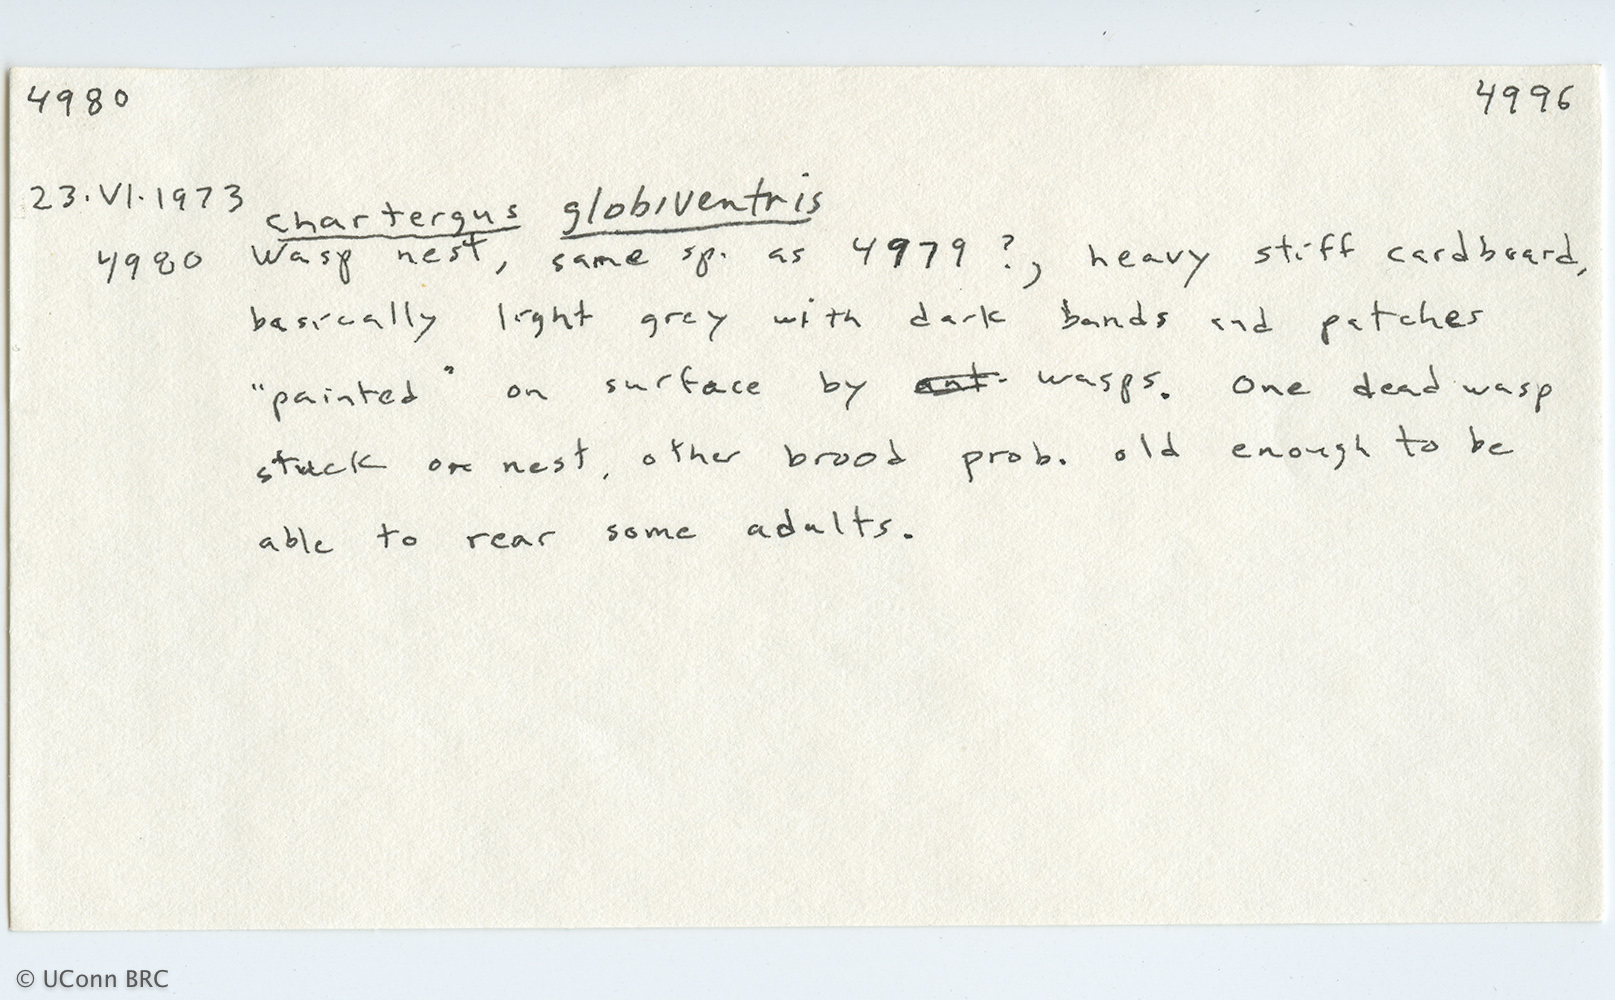 4980 4996
23.VI.1973 Chartergus globiventris
4980 Wasp nest, same sp. as 4979?, heavy stiff cardboard,
basically light grey with dark bands and patches
"painted" on surface by ant. wasps. One dead wasp
stuck on nest, other brood prob. old enough to be
able to rear some adults.
© UConn BRC